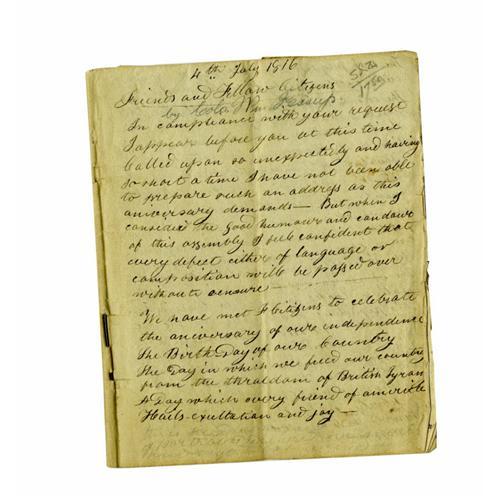 4th July 1916
Friends and Fellow Citizens
by Wm Jessup
In compliance with your request
I appear before you at this time
Called upon so unexpectedly and having
so short a time I have not been able
to prepare such an address as this
aniversary demands — But when I
consider the good humour and candour
of this assembly I feel confident that
every defect either of language or
composition will be passed over
without censure —
We have met F Citizens to celebrate
the aniversary of our independence
The Birth Day of our Country
The Day in which we freed our country
from the thraldom of British Tyran
A Day which every friend of
Hails exultation and joy —